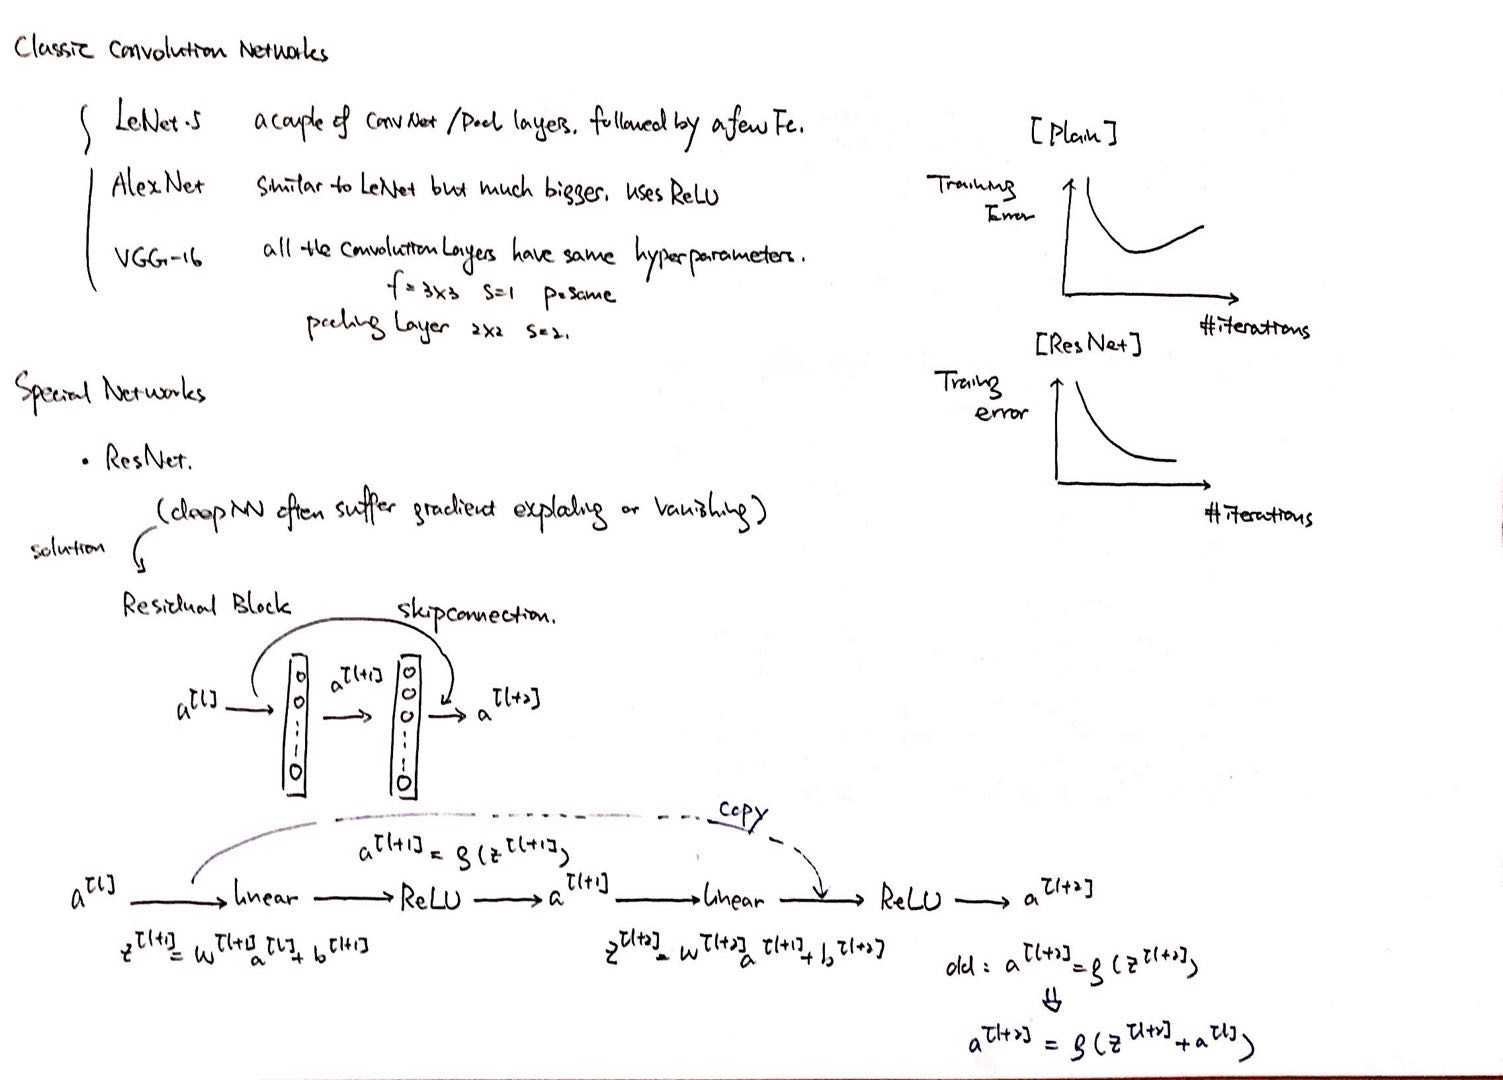 Classic Convolution Networks
LeNet-5 a couple of ConvNet / Pool layers, followed by a few Fc.
AlexNet Similar to LeNet but much bigger, uses ReLU
VGG-16 all the Convolution Layers have same hyperparameters.
f = 3x3 S=1 P=same
pooling Layer 2x2 S=2.
[Plain]
Training
Error
#iterations
[ResNet]
Traing
error
#iterations
Special Networks
• ResNet.
(deep NN often suffer gradient exploding or vanishing)
solution
Residual Block
skip connection.
a[l] a[l+1] a[l+2]
copy
a[l+1] = g(z[l+1])
a[l] → linear → ReLU → a[l+1] → linear → ReLU → a[l+2]
z[l+1] = w[l+1] a[l] + b[l+1] z[l+2] = w[l+2] a[l+1] + b[l+2]
old: a[l+2] = g(z[l+2])
⇓
a[l+2] = g(z[l+2] + a[l])